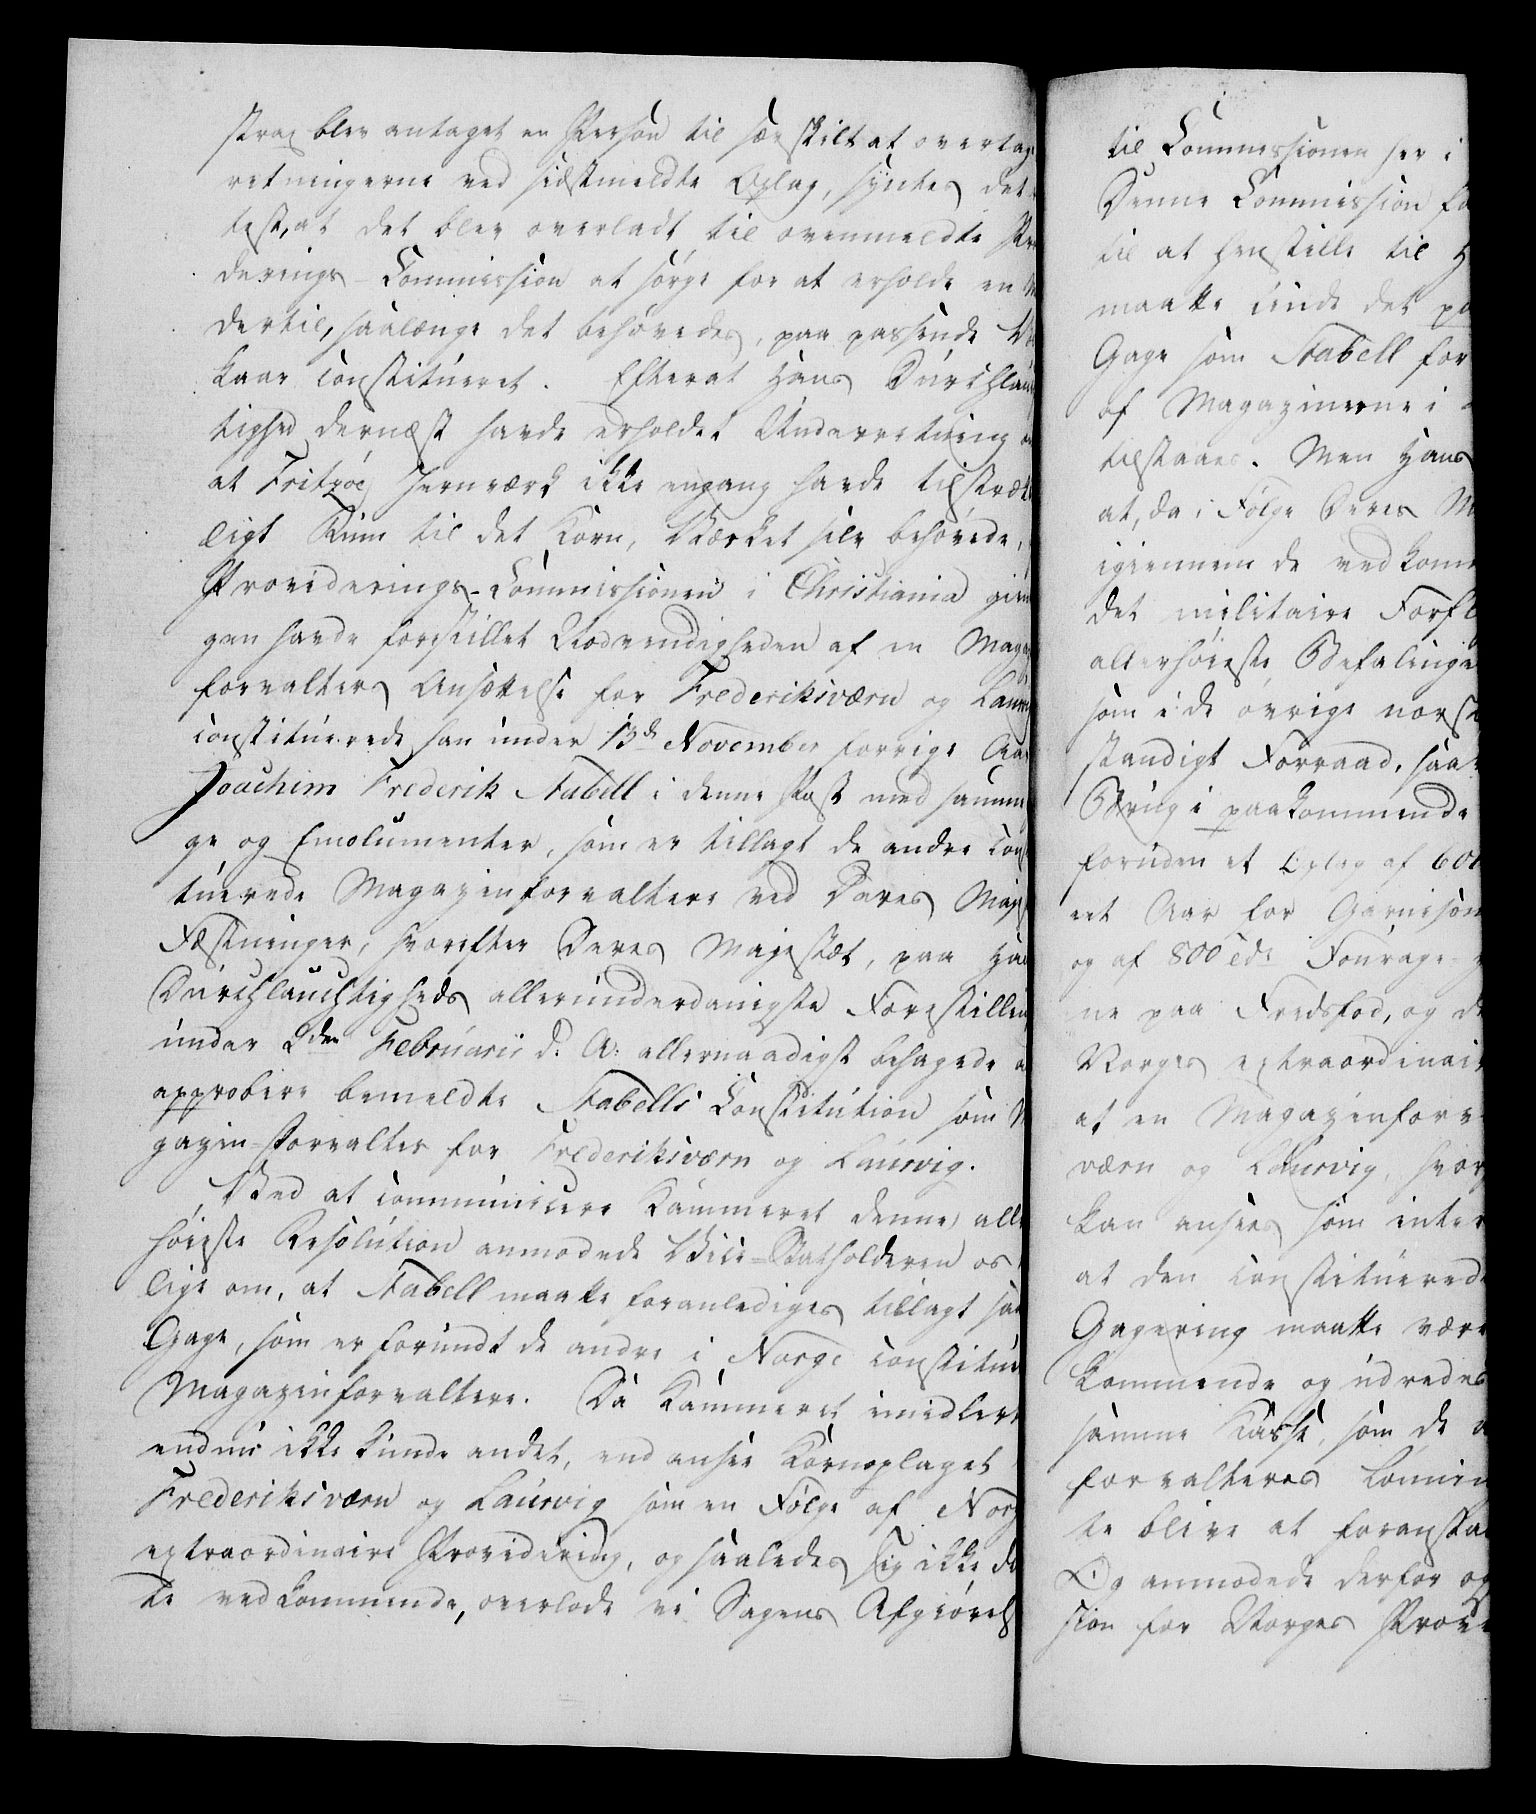 strax blev antaget en Person til særskilt at overtag
retningerne ved sidstmeldte Oplag, syntes det
test, at det blev overladt til ovenmeldte Pro
derings-Commission at sørge for at erholde en M
dertil, saalænge det behøvedes, paa passende Vil
kaar constitueret. Efterat Hans Durchlauch
tighed dernæst havde erholdet Underretning o
at Fritzöe Jernværk ikke engang havde tilstræk
ligt Rum til det Korn, Værket selv behøvede,
Providerings-Commissionen i Christiania gien
gen havde forestillet Nødvendigheden af en Maga
forvalters Ansættelse for Frederiksværn og Laurv
constituerede han under 13de November forrige Aar
Joachim Frederik Stabell i denne Post med samme
ge og Emolumenter, som er tillagt de andre const
tuerede Magazinforvaltere ved Deres Majest
Fæstninger, hvorefter Deres Majestæt, paa Han
Durchlauchtigheds allerunderdanigste Forestillin
under 2den Februarii d. A. allernaadigst behagede a
approbere bemeldte Stabells Constitution som M
gazin-Forvalter for Frederiksværn og Laurvig.
Ved at communicere Kammeret denne aller
høieste Resolution anmodede Vice-Statholderen os
lige om, at Stabell maatte foranlediges tillagt saa
Gage, som er forundt de andre i Norge constitue
Magazinforvaltere. Da Kammeret imidlert
endnu ikke kunde andet, end ansee Kornoplaget
Frederiksværn og Laurvig som en Følge af Norg
extraordinaire Providering, og saaledes sig ikke de
te vedkommende, overlode vi Sagens Afgiørels
til Commissionen her i
Denne Commission fo
til at henstille til H
maatte finde det pa
Gage som Stabell for
af Magazinerne i
tilstaaes. Men Hans
at, da i Følge Deres M
igiennem de vedkom
det militaire Forfl
allerhøieste Befalinge
som i de øvrige norsk
standigt Forraad, saa
Brug i paakommende
foruden et Oplag af 600
eet Aar for Garnison
og af 800 eds Fourage-
ne paa Fredsfod, og de
Norges extraordinair
at en Magazinforv
værn og Laurvig, hvor
kan ansees som inter
at den constituerede
Gagering maatte være
kommende og udredes
samme Kasse, som de
forvalteres Lønnin
te blive at foranstal
Og anmodede derfor og
sion for Norges Prov